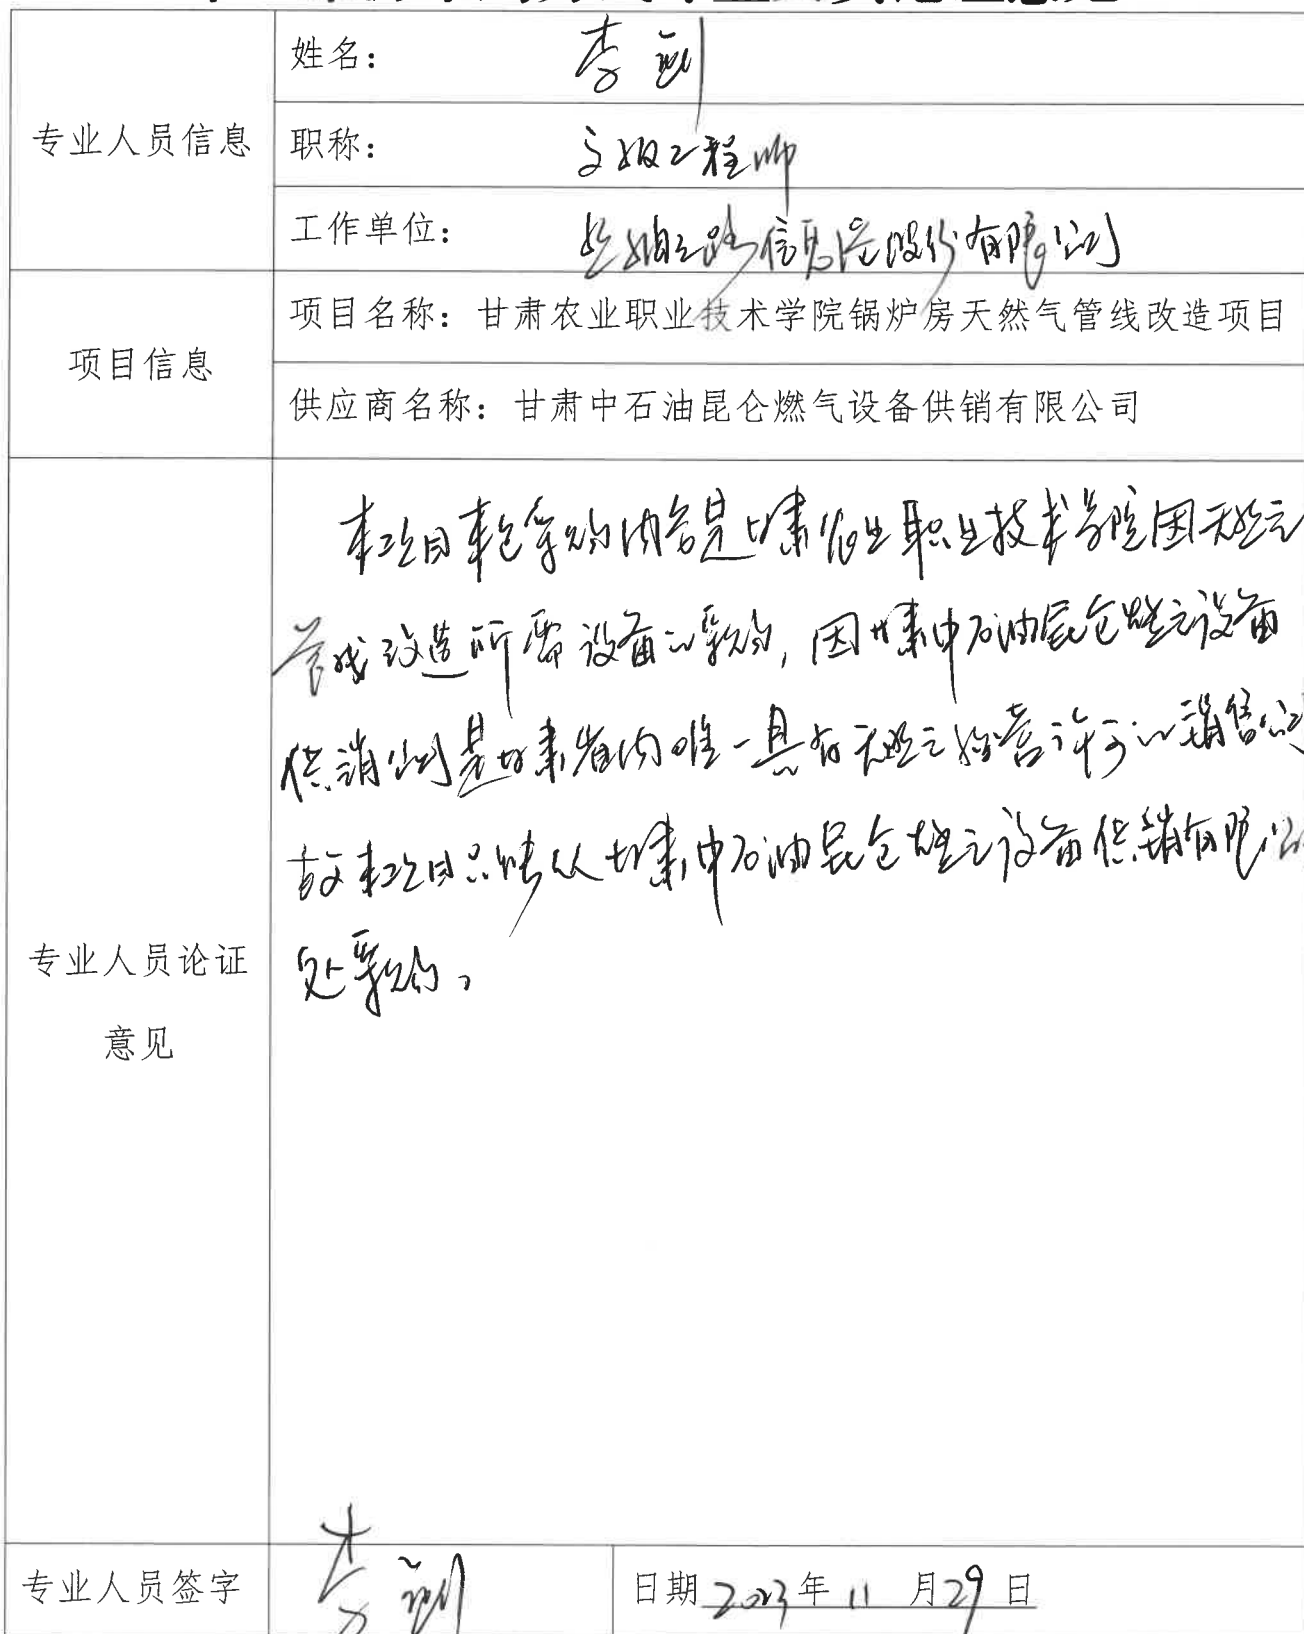 专业人员信息
姓名：李刚
职称：高级工程师
工作单位：丝绸之路信息港股份有限公司
项目信息
项目名称：甘肃农业职业技术学院锅炉房天然气管线改造项目
供应商名称：甘肃中石油昆仑燃气设备供销有限公司
专业人员论证
意见
本项目采购内容是甘肃农业职业技术学院因天然气
管线改造所需设备的采购，因甘肃中石油昆仑燃气设备
供销公司是甘肃省内唯一具有天然气经营许可的销售公司
故本项目只能从甘肃中石油昆仑燃气设备供销有限公司
处采购。
专业人员签字
李刚
日期 2023年 11 月29 日